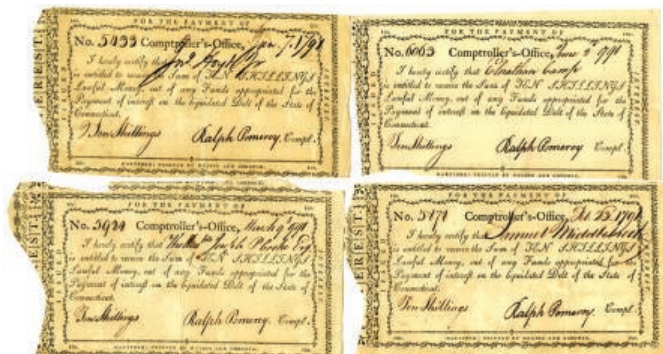 FOR THE PAYMENT OF
No. 5433 Comptroller's-Office, Jan. 7, 1791
I hereby certify that
is entitled to receive the Sum of TEN SHILLINGS
Lawful Money, out of any Funds appropriated for the
Payment of interest on the liquidated Debt of the State of
Connecticut.
Ten Shillings Ralph Pomeroy Compt.
INTEREST
FOR THE PAYMENT OF
No. 6003 Comptroller's-Office, June 1791
I hereby certify that Elnathan Camp
is entitled to receive the Sum of TEN SHILLINGS
Lawful Money, out of any Funds appropriated for the
Payment of interest on the liquidated Debt of the State of
Connecticut.
Ten Shillings Ralph Pomeroy Compt.
HARTFORD: PRINTED BY HUDSON AND GOODWIN.
INTEREST
FOR THE PAYMENT OF
No. 5924 Comptroller's-Office, March 1791
I hereby certify that
is entitled to receive the Sum of TEN SHILLINGS
Lawful Money, out of any Funds appropriated for the
Payment of interest on the liquidated Debt of the State of
Connecticut.
Ten Shillings Ralph Pomeroy Compt.
HARTFORD: PRINTED BY HUDSON AND GOODWIN.
FOR THE PAYMENT OF
No. 5171 Comptroller's-Office, 1791
I hereby certify that Samuel Middlebrook
is entitled to receive the Sum of TEN SHILLINGS
Lawful Money, out of any Funds appropriated for the
Payment of interest on the liquidated Debt of the State of
Connecticut.
Ten Shillings Ralph Pomeroy Compt.
HARTFORD: PRINTED BY HUDSON AND GOODWIN.